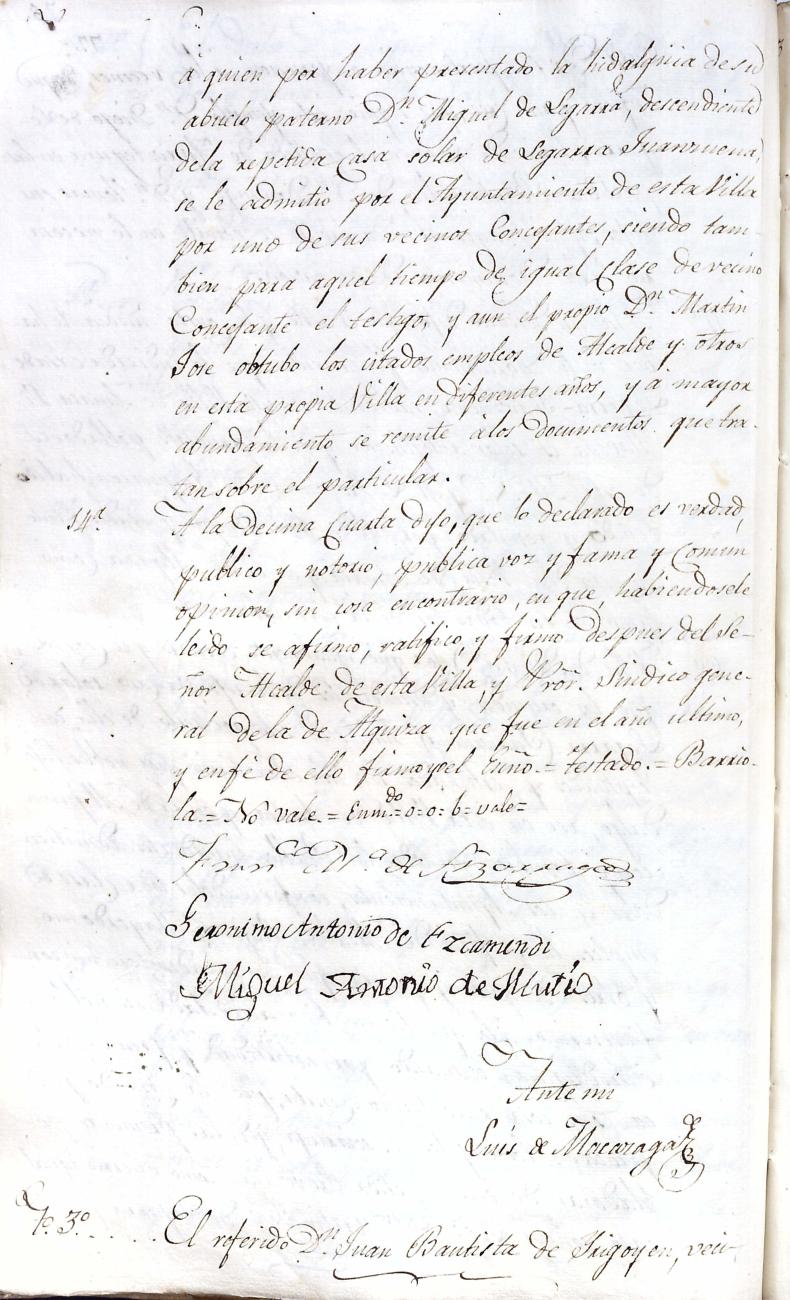 à quien por haber presentado la hidalguia de su
abuelo paterno Dn. Miguel de Legarra, descendiente
dela repetida Casa solar de Legarra Juanzuena,
se le admitio por el Ayuntamiento de esta Villa
por uno de sus vecinos Concejantes, siendo tam-
bien para aquel tiempo de igual clase de vecino
Concejante el testigo, y aun el propio Dn. Martin
Jose obtubo los citados empleos de Alcalde y otros
en esta propia Villa en diferentes años, y à mayor
abundamiento se remite àlos documentos que tra-
tan sobre el particular.
14a. A la decima Cuarta dijo, que lo declarado es verdad,
publico y notorio, publica voz y fama y Comun
opinion, sin cosa encontrario, en que, habiendosele
leido se afirmo, ratifico, y firmo despues del Se-
ñor Alcalde de esta Villa, y Prōr. Sindico gene-
ral dela de Alquiza que fue en el año ultimo,
y enfé de ello firmo yo el Esño. = Testado. = Barrio-
la. = No vale. = Enmdo. = o = o = b = vale =
Franco. Ma. de
Geronimo Antonio de Ezcamendi
Miguel Antonio de Mutio
Ante mi
Luis de Macaraga
To. 3o. ..... El referido Dn. Juan Bautista de Irigoyen, veci-